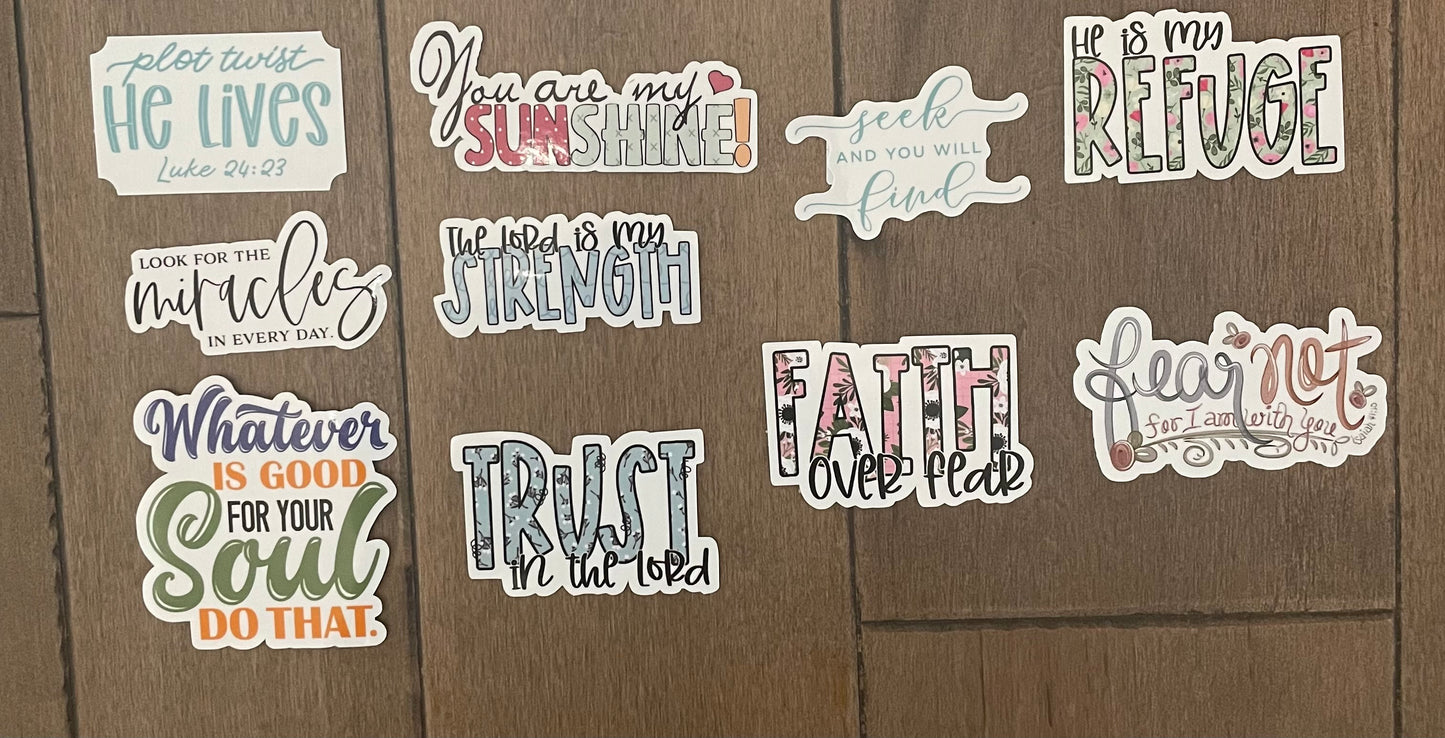 plot twist
HE LIVES
Luke 24:23
You are my
SUNSHINE!
seek
AND YOU WILL
find
HE is my
REFUGE
LOOK FOR THE
miracles
IN EVERY DAY.
THE LORD is MY
STRENGTH
Whatever
IS GOOD
FOR YOUR
Soul
DO THAT.
TRUST
in the LORD
FAITH
OVER FEAR
fear not
for I am with you